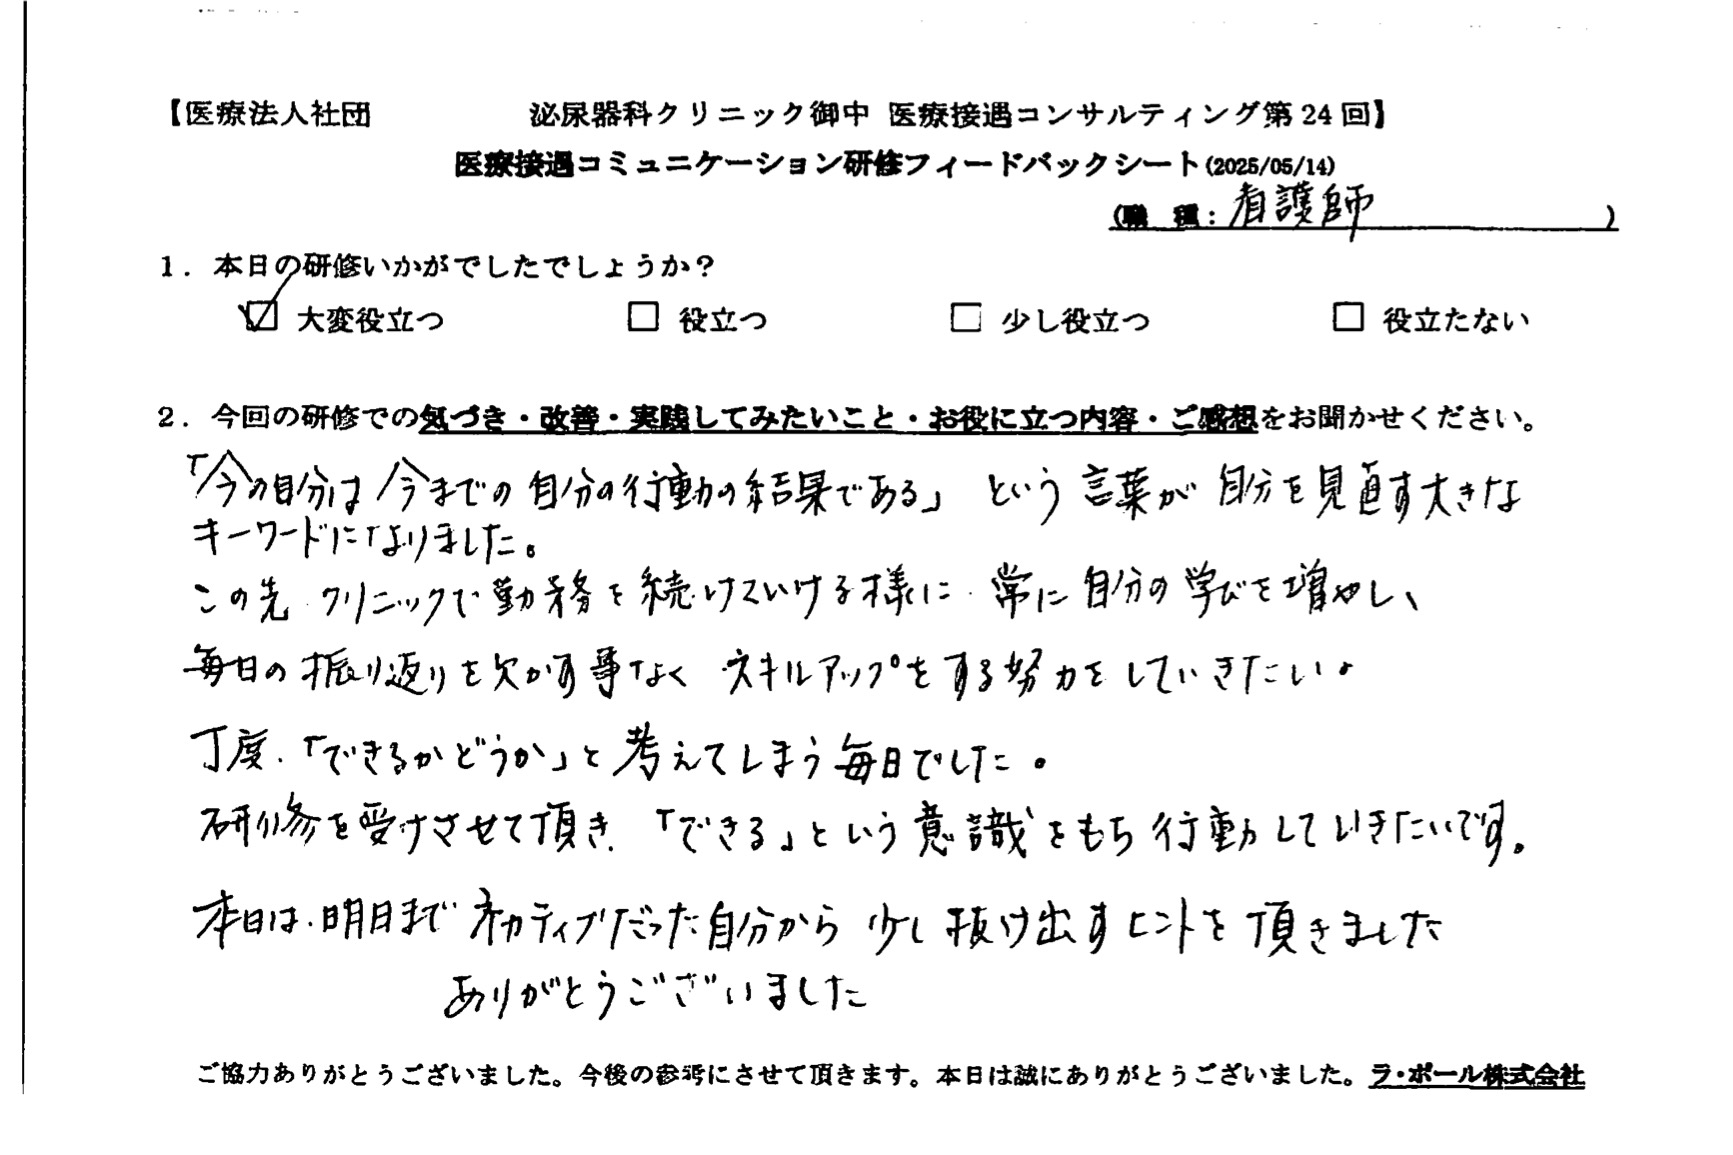 【医療法人社団 泌尿器科クリニック御中 医療接遇コンサルティング第24回】
医療接遇コミュニケーション研修フィードバックシート(2025/05/14)
(職 種：看護師 )
1．本日の研修いかがでしたでしょうか？
☑ 大変役立つ □ 役立つ □ 少し役立つ □ 役立たない
2．今回の研修での気づき・改善・実践してみたいこと・お役に立つ内容・ご感想をお聞かせください。
「今の自分は今までの自分の行動の結果である」という言葉が自分を見直す大きな
キーワードになりました。
この先クリニックで勤務を続けていける様に常に自分の学びを増やし、
毎日の振り返りを欠かす事なくスキルアップをする努力をしていきたい。
丁度、「できるかどうか」と考えてしまう毎日でした。
研修を受けさせて頂き、「できる」という意識をもち行動していきたいです。
本日は、明日までネガティブだった自分から少し抜け出すヒントを頂きました
ありがとうございました
ご協力ありがとうございました。今後の参考にさせて頂きます。本日は誠にありがとうございました。ラ・ポール株式会社